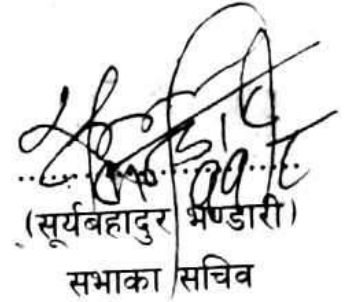 (सूर्यबहादुर भण्डारी)
सभाका सचिव